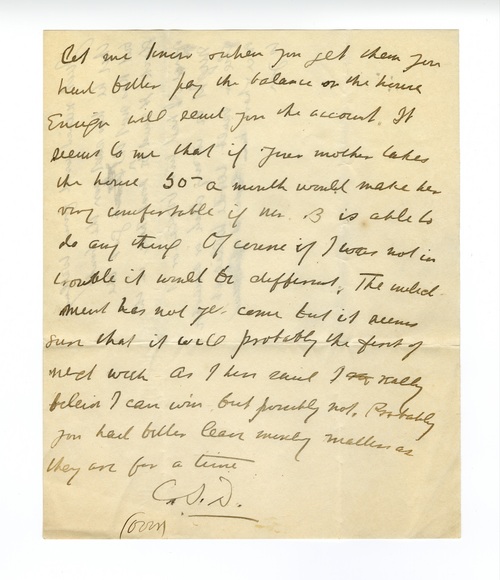 Let me know when you get them you
had better pay the balance on the house
will send you the account. It
seems to me that if your mother takes
the house 50 – a month would make her
very comfortable if Mr. B is able to
do any thing Of course if I was not in
trouble it would be different. The indict
ment has not yet come but it seems
sure that it will probably the first of
next week. As I have said I really
believe I can win but possibly not. Probably
you had better leave money matters as
they are for a time
C. S. D.
(over)